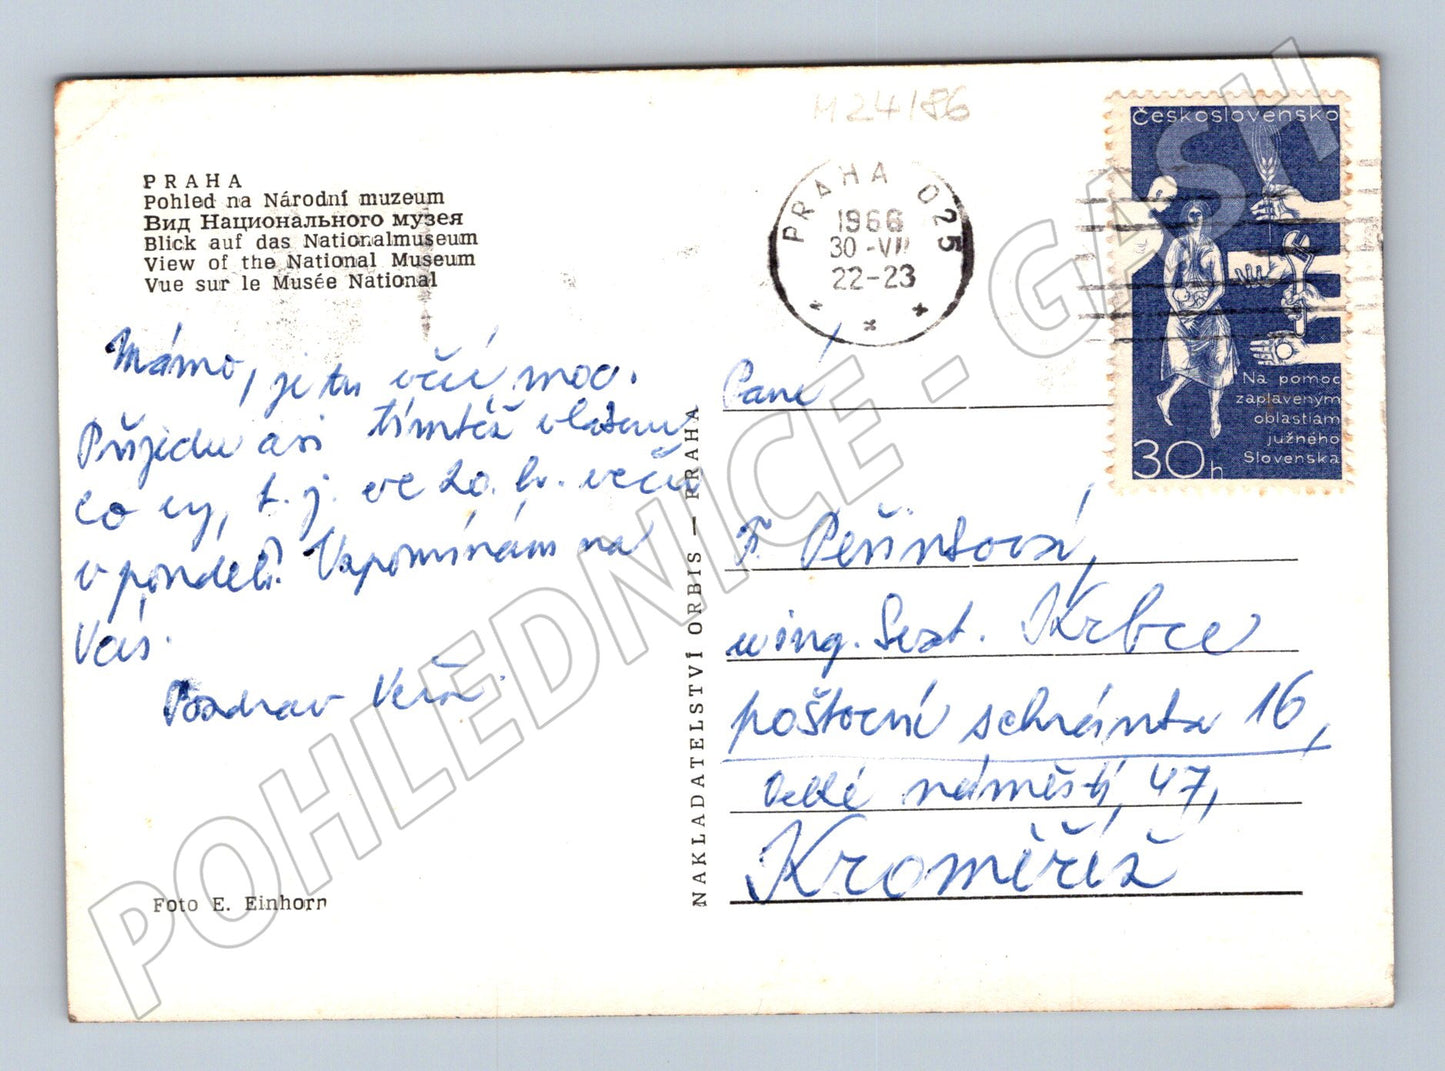 M24186
PRAHA
Pohled na Národní muzeum
Вид Национального музея
Blick auf das Nationalmuseum
View of the National Museum
Vue sur le Musée National
Mámo, je tu věcí moc.
Přijedu asi tímtéž vlakem
co vy, t.j. ve 20. h. več.
v pondělí. Vzpomínám na
Vás.
Pozdrav Věra.
Foto E. Einhorn
NAKLADATELSTVÍ ORBIS — PRAHA
PRAHA 025
1966
30-VII
22-23
Československo
Na pomoc
zaplaveným
oblastiam
južného
Slovenska
30h
Paní
F. Peřintová,
u ing. Krbce
poštovní schránka 16,
Velké náměstí, 47,
Kroměříž
POHLEDNICE - GASH